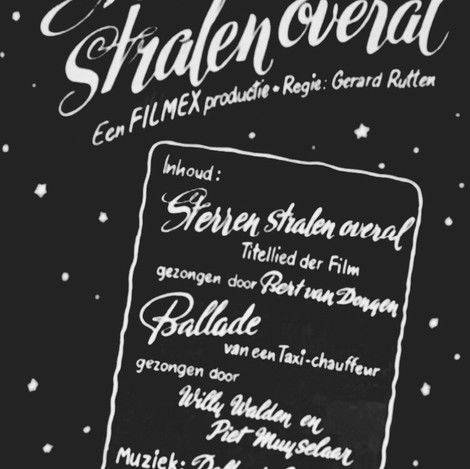 Stralen overal
Een FILMEX productie • Regie: Gerard Rutten
Inhoud:
Sterren stralen overal
Titellied der Film
gezongen door Bert van Dongen
Ballade
van een Taxi-chauffeur
gezongen door
Willy Walden en
Piet Muyselaar
Muziek: